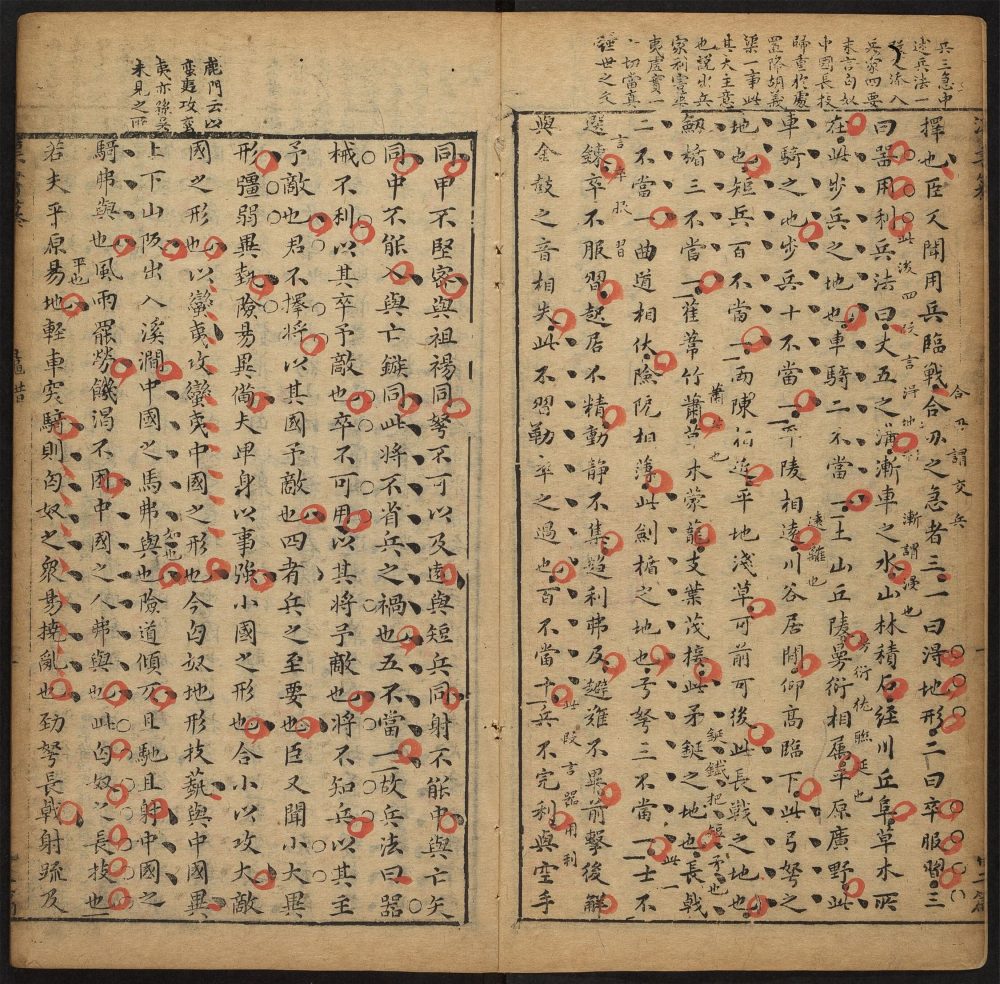 兵三急中
述兵法一
段又添入
兵家四要
末言匈奴
中國長技
歸重於處
置降胡義
渠一事此
其大主意
也說出兵
家利害
夷虛實一
一切當真
經世之文
擇也臣又聞用兵臨戰合刃之急者三一曰得地形二曰卒服習三
合刃謂交兵
曰器用利兵法曰丈五之溝漸車之水山林積石經川丘阜草木所
此後四段言得地形
漸謂浸也
在此步兵之地也車騎二不當一土山丘陵曼衍相屬平原廣野此
曼衍猶聯延也
車騎之地也步兵十不當一平陵相遠川谷居間仰高臨下此弓弩之
遠離也
地也短兵百不當一兩陳相近平地淺草可前可後此長戟之地也
劍楯三不當一萑葦竹蕭草木蒙蘢支葉茂接此矛鋋之地也長戟
蕭蒿也
鋋鐵把短矛也
二不當一曲道相伏險阨相薄此劍楯之地也弓弩三不當一士不
此一
言卒服習
選鍊卒不服習起居不精動靜不集趨利弗及避難不畢前擊後解
與金鼓之音相失此不習勒卒之過也百不當十兵不完利與空手
此段言器用利
鹿門云以
蠻夷攻蠻
夷亦孫吳
未見之所
同甲不堅密與袒裼同弩不可以及遠與短兵同射不能中與亡矢
同中不能入與亡鏃同此將不省兵之禍也五不當一故兵法曰器
械不利以其卒予敵也卒不可用以其將予敵也將不知兵以其主
予敵也君不擇將以其國予敵也四者兵之至要也臣又聞小大異
形彊弱異埶險易異備夫卑身以事强小國之形也合小以攻大敵
國之形也以蠻夷攻蠻夷中國之形也今匈奴地形技藝與中國異
上下山阪出入溪澗中國之馬弗與也險道傾仄且馳且射中國之
如也
騎弗與也風雨罷勞饑渴不困中國之人弗與也此匈奴之長技也
若夫平原易地輕車突騎則匈奴之衆易撓亂也勁弩長戟射疏及
平也
鼂錯